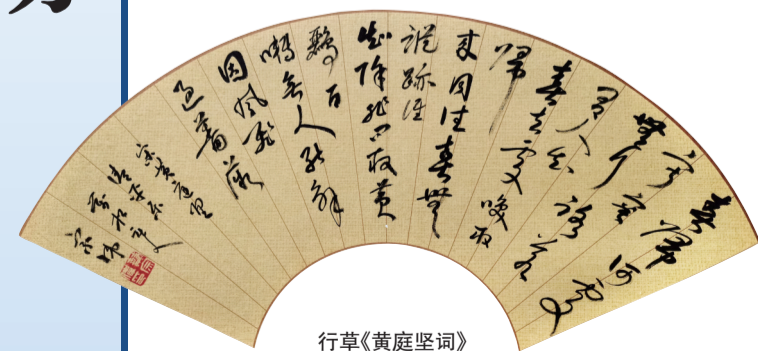 春歸何處
寂寞
無行路若
有人知
春去處喚取
歸
來同住春無
蹤跡誰
知除非問取黃
鸝百
囀無人能解
因風飛
過薔薇
宋黃庭堅
清平乐
行草《黄庭坚词》